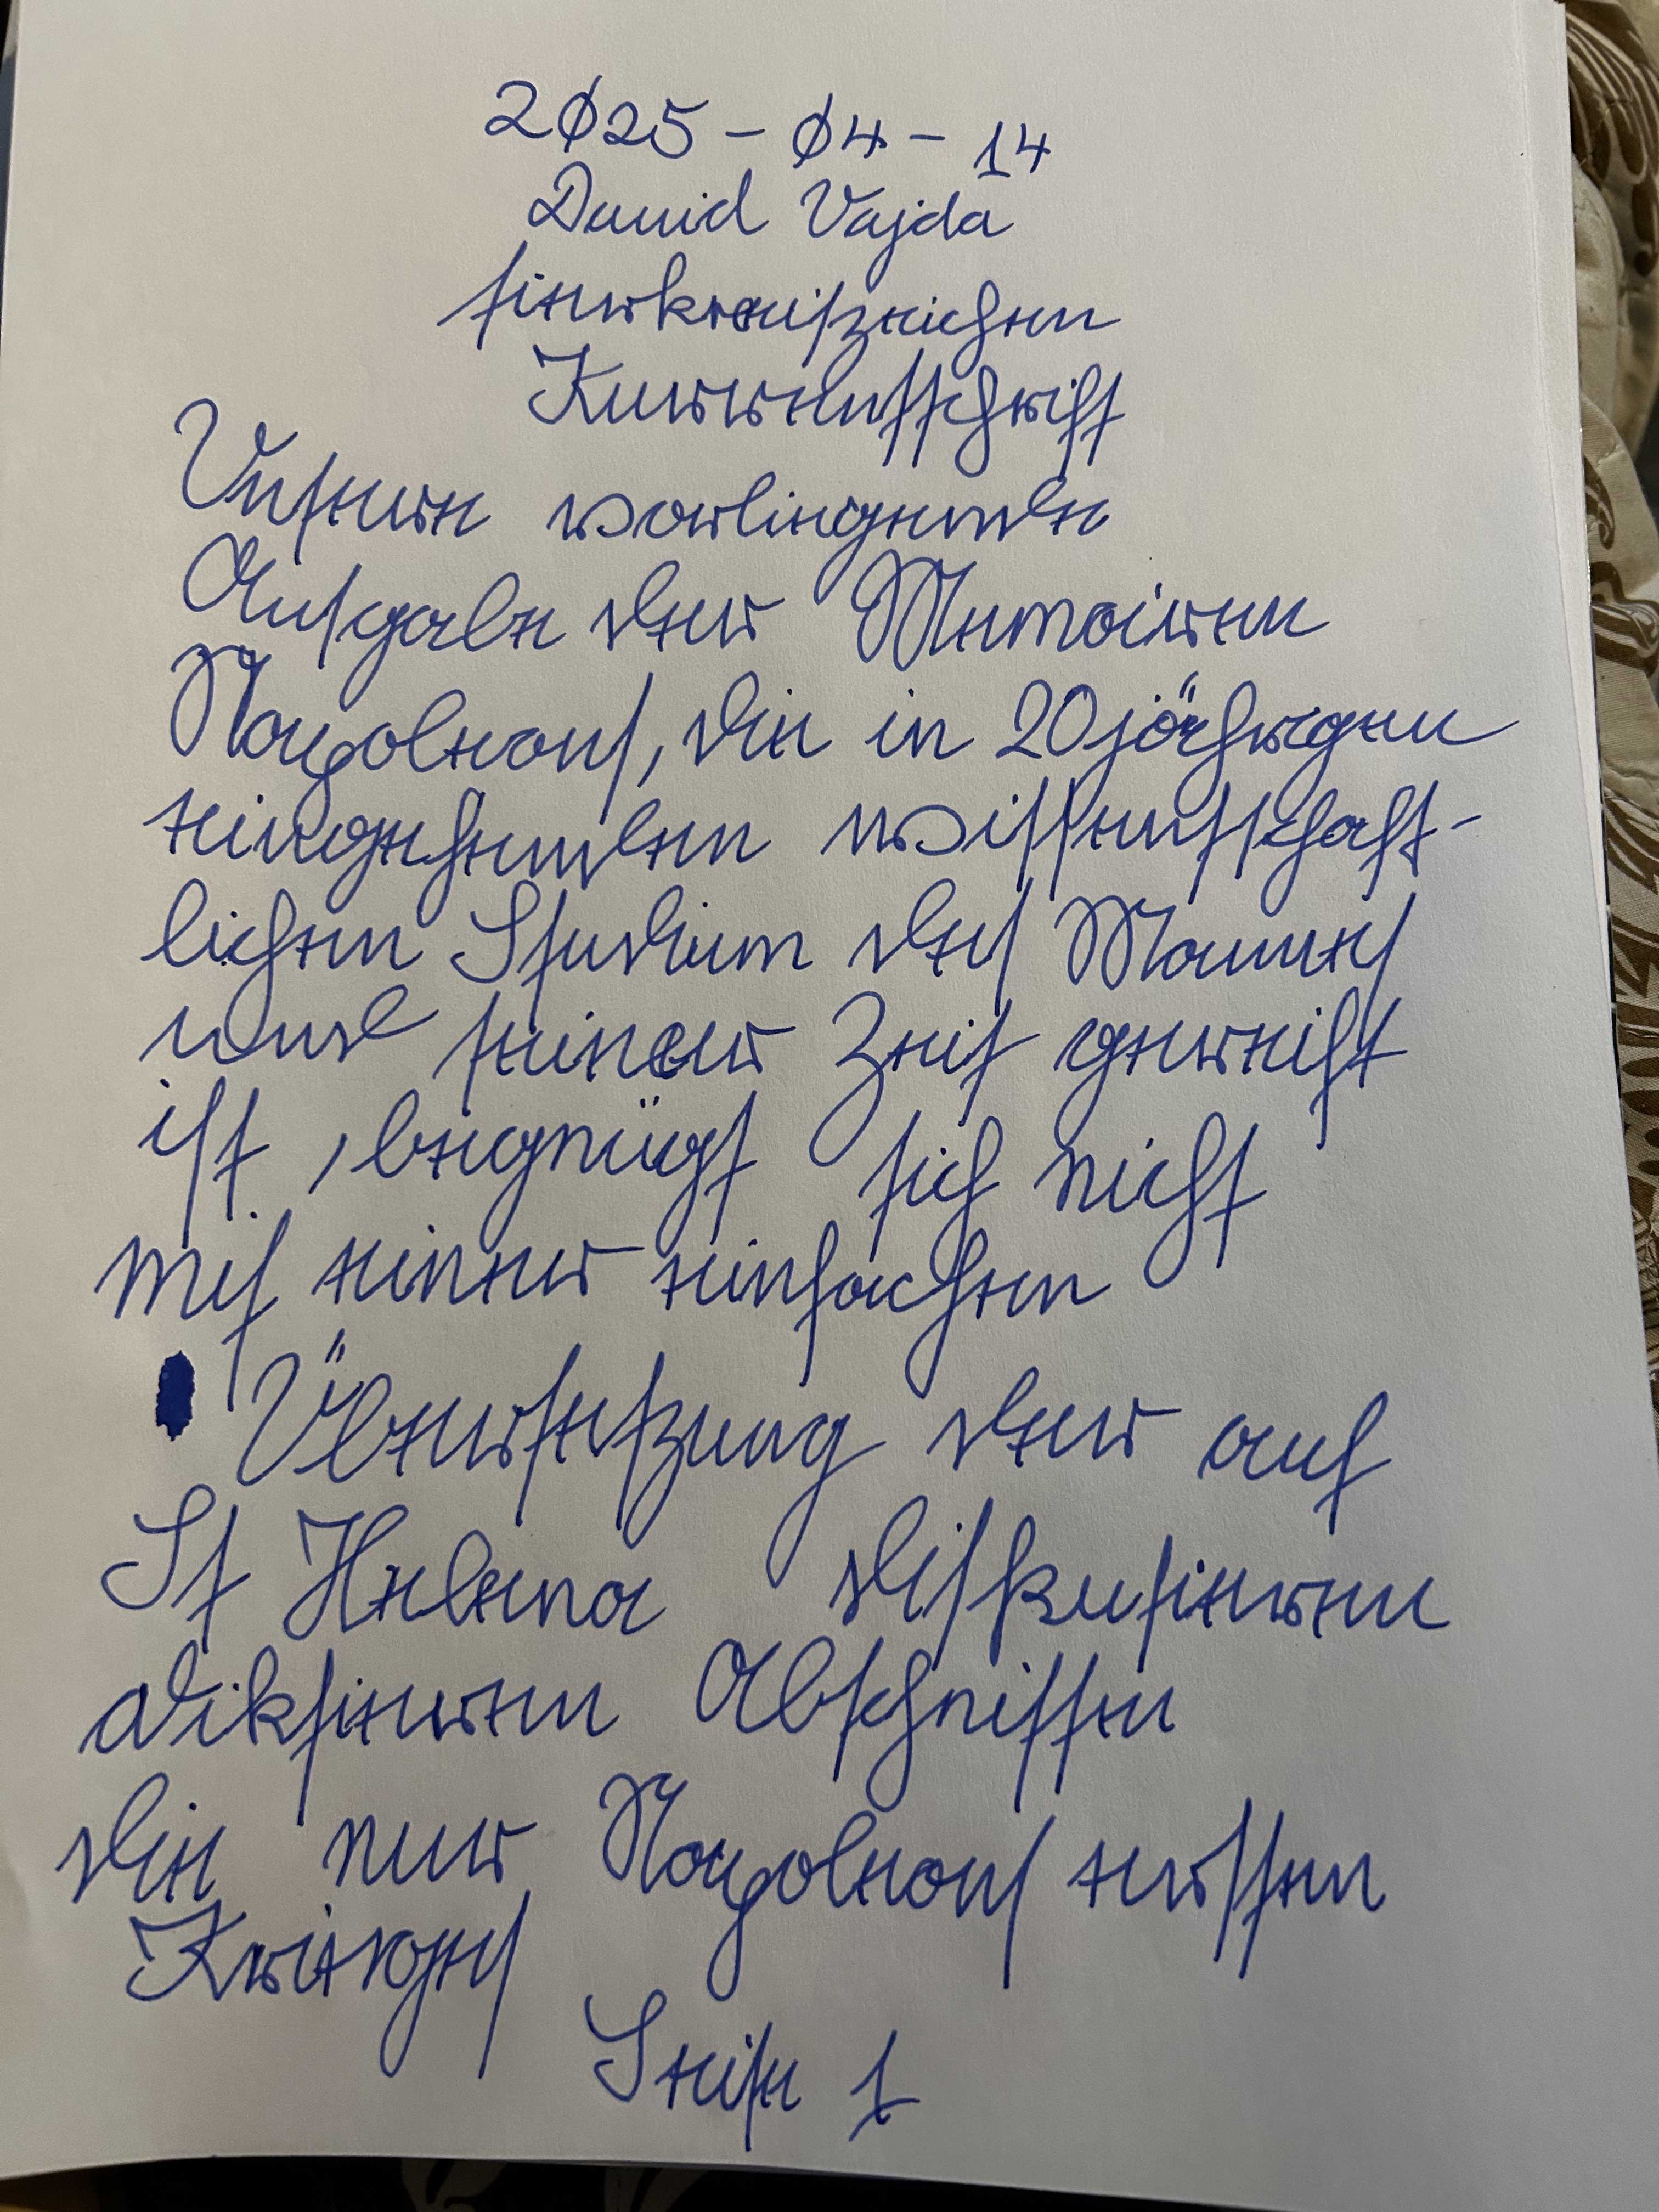 2025-04-14
David Vajda
Kurrentschrift
Unsere vorliegende
Ausgabe der Memoiren
Napoleons, die in 20jährigen
eingehenden wissenschaft-
lichen Studium des Mannes
und seiner Zeit gereift
ist, begnügt sich nicht
mit einer einfachen
Übersetzung der auf
St Helena diskutieren
diktieren Abschnitten
die nur Napoleons ersten
Krieges
Seite 1